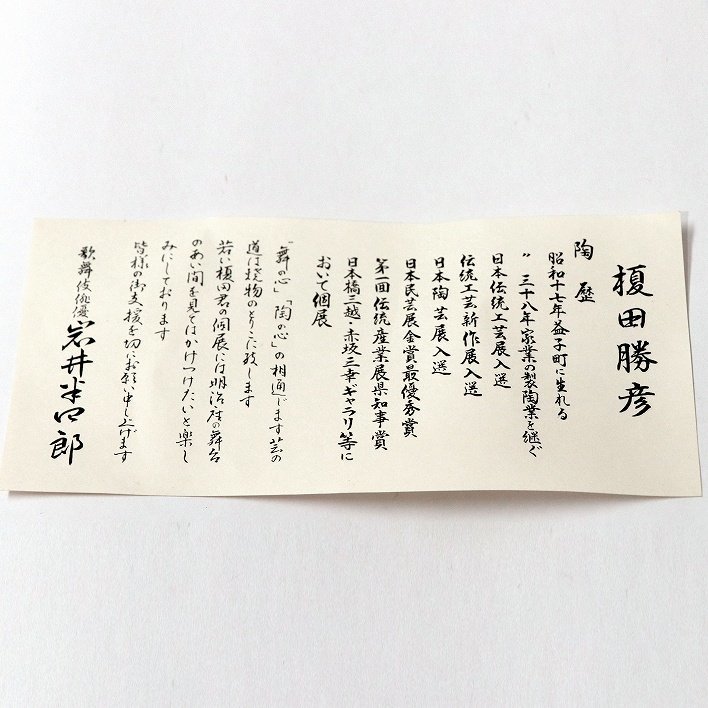 榎田勝彦
陶歴
昭和十七年益子町に生れる
〃 三十八年家業の製陶業を継ぐ
日本伝統工芸展入選
伝統工芸新作展入選
日本陶芸展入選
日本民芸展金賞最優秀賞
第一回伝統産業展県知事賞
日本橋三越・赤坂三幸ギャラリ等に
おいて個展
「舞の心」「陶の心」の相通じます芸の
道は焼物のとりこに致します
若い榎田君の個展には明治座の舞台
のあい間を見てはかけつけたいと楽し
みにしております
皆様の御支援を切にお願い申し上げます
歌舞伎俳優 岩井半四郎